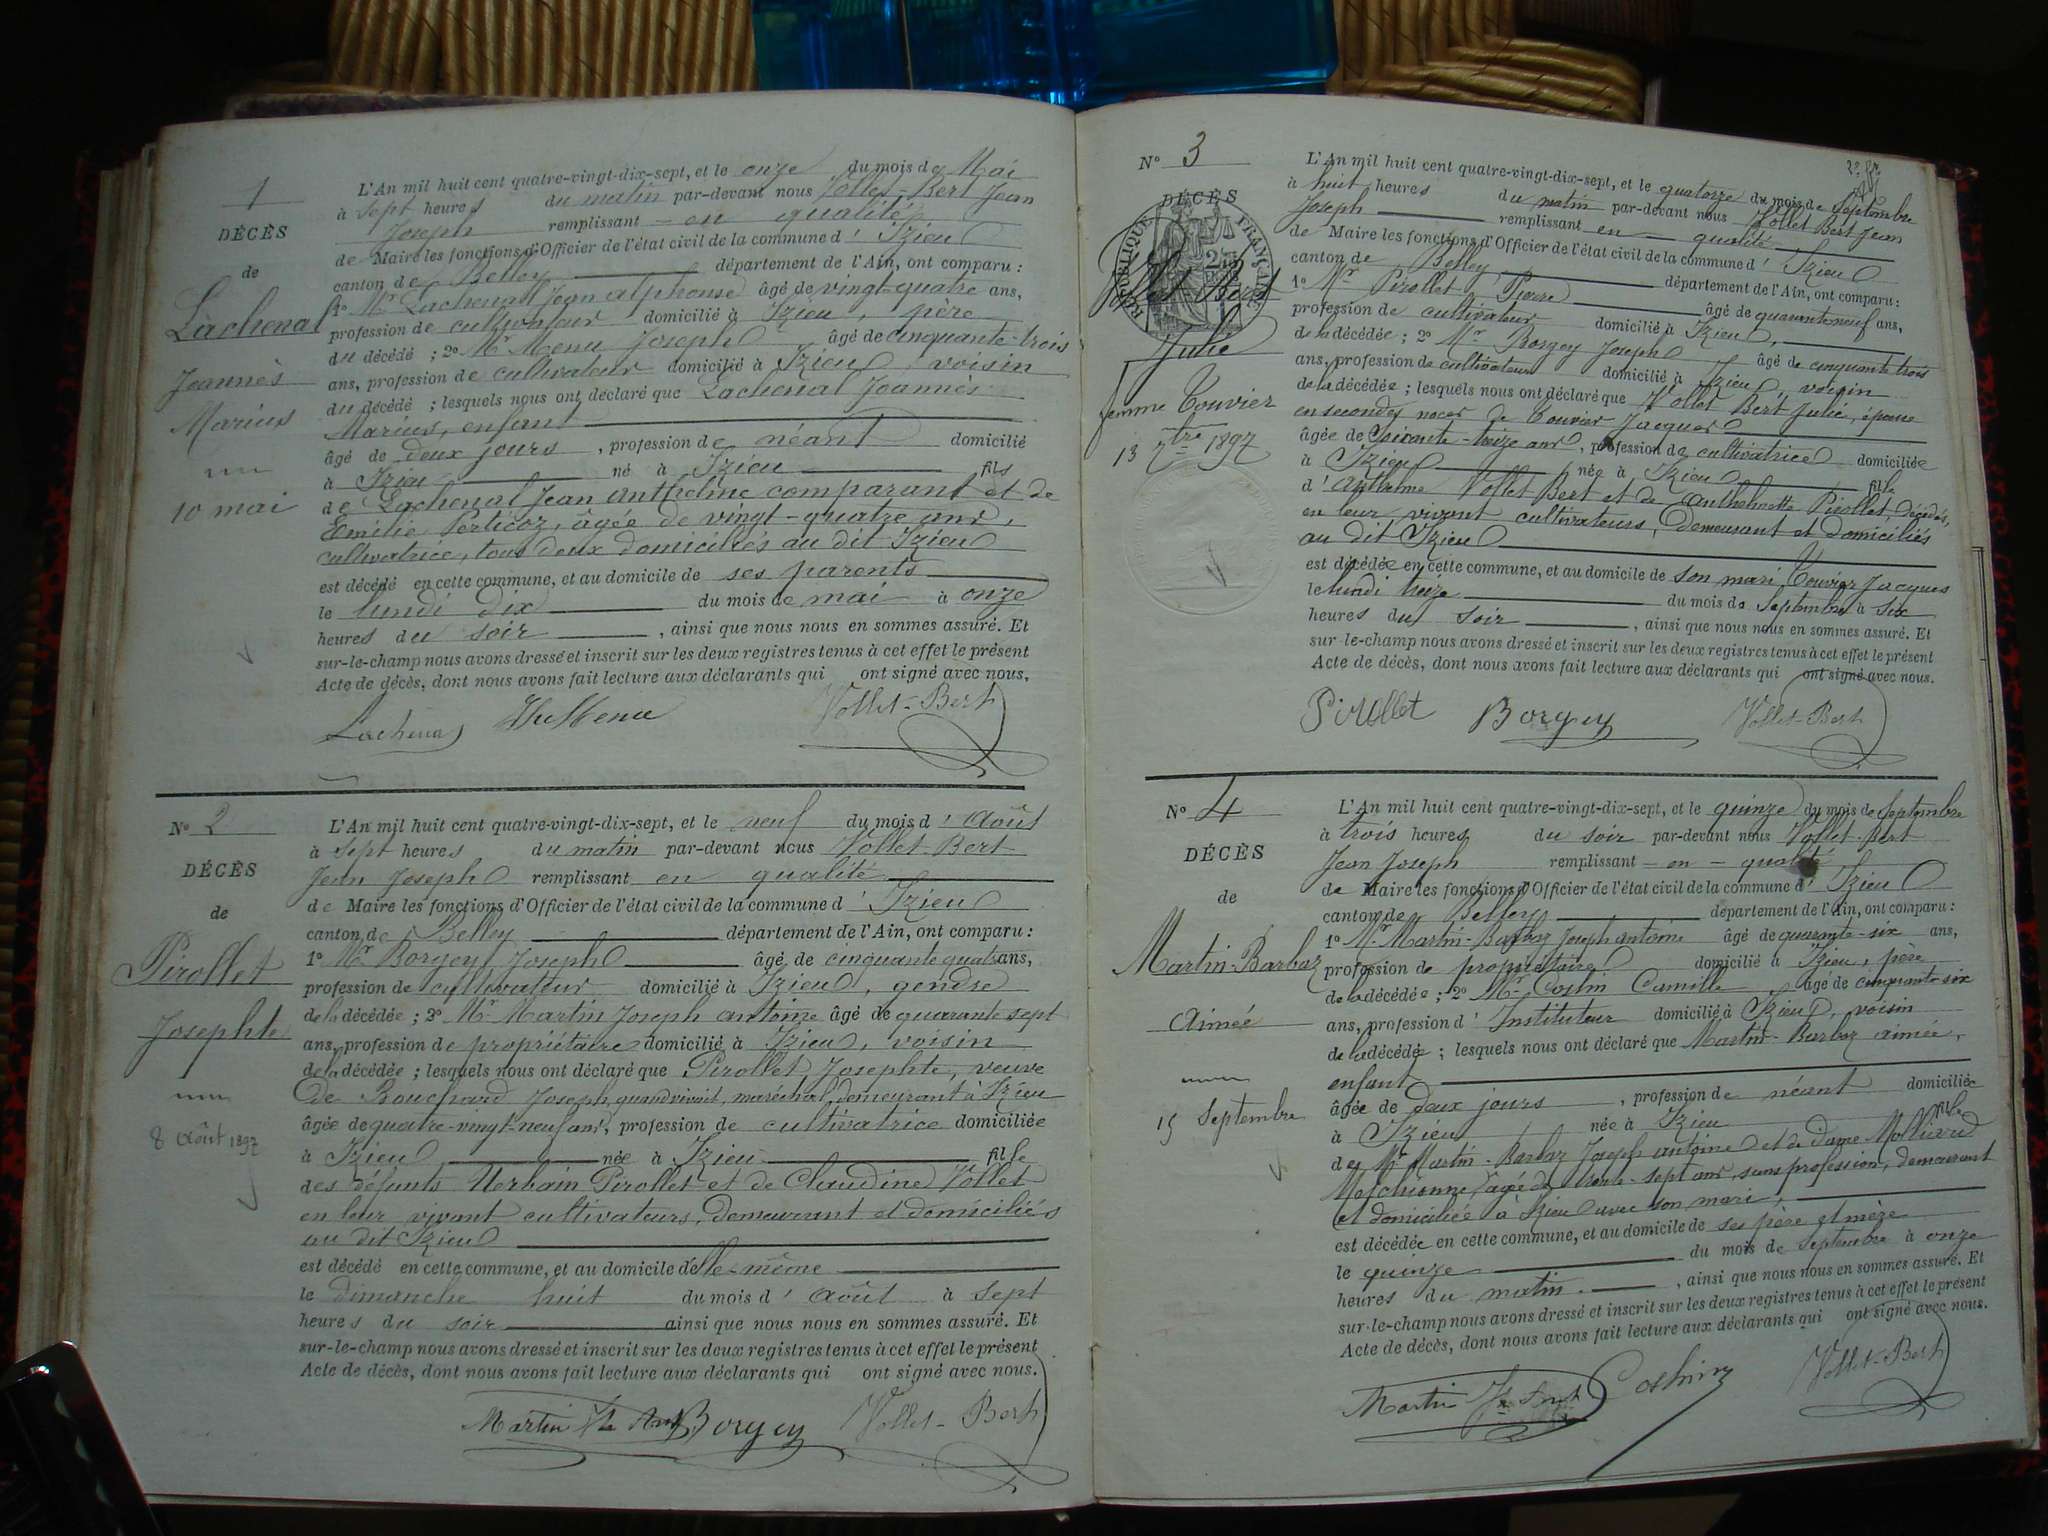 1
DÉCÈS
de
Lachenal
Joannès
Marius
10 mai
L'An mil huit cent quatre-vingt-dix-sept, et le onze du mois de Mai
à Sept heures du matin par-devant nous Vollet-Bert Jean
Joseph remplissant en qualité
de Maire les fonctions d'Officier de l'état civil de la commune d' Izieu
canton de Belley département de l'Ain, ont comparu :
1º Mr Lachenal Jean alphonse âgé de vingt-quatre ans,
profession de cultivateur domicilié à Izieu, père
du décédé ; 2º Mr Menu Joseph âgé de cinquante-trois
ans, profession de cultivateur domicilié à Izieu, voisin
du décédé ; lesquels nous ont déclaré que Lachenal Joannès
Marius, enfant
âgé de deux jours, profession de néant domicilié
à Izieu né à Izieu fils
de Lachenal Jean Anthelme comparant et de
Emilie Perticoz, âgée de vingt-quatre ans,
cultivatrice, tous deux domiciliés au dit Izieu
est décédé en cette commune, et au domicile de ses parents
le lundi dix du mois de mai à onze
heures du soir, ainsi que nous nous en sommes assuré. Et
sur-le-champ nous avons dressé et inscrit sur les deux registres tenus à cet effet le présent
Acte de décès, dont nous avons fait lecture aux déclarants qui ont signé avec nous.
Lachenal Menu Vollet-Bert
Nº 2
DÉCÈS
de
Pirollet
Josephte
8 Août 1897
L'An mil huit cent quatre-vingt-dix-sept, et le neuf du mois d' Août
à Sept heures du matin par-devant nous Vollet-Bert
Jean Joseph remplissant en qualité
de Maire les fonctions d'Officier de l'état civil de la commune d' Izieu
canton de Belley département de l'Ain, ont comparu :
1º Mr Borgey Joseph âgé de cinquante quatre ans,
profession de cultivateur domicilié à Izieu, gendre
de la décédée ; 2º Mr Martin Joseph antoine âgé de quarante sept
ans, profession de propriétaire domicilié à Izieu, voisin
de la décédée ; lesquels nous ont déclaré que Pirollet Josephte, veuve
de Bouchard Joseph, quand vivait, maréchal, demeurant à Izieu
âgée de quatre-vingt-neuf ans, profession de cultivatrice domiciliée
à Izieu née à Izieu fille
des défunts Urbain Pirollet et de Claudine Vollet
en leur vivant cultivateurs, demeurant et domiciliés
au dit Izieu
est décédé en cette commune, et au domicile d'elle-même
le dimanche huit du mois d' Août à sept
heures du soir ainsi que nous nous en sommes assuré. Et
sur-le-champ nous avons dressé et inscrit sur les deux registres tenus à cet effet le présent
Acte de décès, dont nous avons fait lecture aux déclarants qui ont signé avec nous.
Martin Borgey Vollet-Bert
Nº 3
DÉCÈS
RÉPUBLIQUE FRANÇAISE
Vollet-Bert
Julie
femme Touvier
13 7bre 1897
L'An mil huit cent quatre-vingt-dix-sept, et le quatorze du mois de Septembre
à huit heures du matin par-devant nous Vollet Bert Jean
Joseph remplissant en qualité
de Maire les fonctions d'Officier de l'état civil de la commune d' Izieu
canton de Belley département de l'Ain, ont comparu :
1º Mr Pirollet Pierre âgé de quarante neuf ans,
profession de cultivateur domicilié à Izieu,
de la décédée ; 2º Mr Borgey Joseph âgé de cinquante trois
ans, profession de cultivateur domicilié à Izieu, voisin
de la décédée ; lesquels nous ont déclaré que Vollet Bert Julie, épouse
en secondes noces de Touvier Jacques
âgée de Soixante-treize ans, profession de cultivatrice domiciliée
à Izieu née à Izieu fille
d' Anthelme Vollet Bert et de Anthelmette Pirollet, décédés,
en leur vivant cultivateurs, demeurant et domiciliés
au dit Izieu
est décédée en cette commune, et au domicile de son mari Touvier Jacques
le lundi treize du mois de Septembre à six
heures du soir, ainsi que nous nous en sommes assuré. Et
sur-le-champ nous avons dressé et inscrit sur les deux registres tenus à cet effet le présent
Acte de décès, dont nous avons fait lecture aux déclarants qui ont signé avec nous.
Pirollet Borgey Vollet-Bert
Nº 4
DÉCÈS
de
Martin-Barbaz
Aimée
15 Septembre
L'An mil huit cent quatre-vingt-dix-sept, et le quinze du mois de Septembre
à trois heures du soir par-devant nous Vollet-Bert
Jean Joseph remplissant en qualité
de Maire les fonctions d'Officier de l'état civil de la commune d' Izieu
canton de Belley département de l'Ain, ont comparu :
1º Mr Martin-Barbaz Joseph antoine âgé de quarante-six ans,
profession de propriétaire domicilié à Izieu, père
de la décédée ; 2º Mr Costin Camille âgé de cinquante six
ans, profession d' Instituteur domicilié à Izieu, voisin
de la décédée ; lesquels nous ont déclaré que Martin-Barbaz aimée,
enfant
âgée de deux jours, profession de néant domiciliée
à Izieu née à Izieu fille
de Mr Martin-Barbaz Joseph antoine et de Dame
Melchionne, âgée de trente-sept ans, sans profession, demeurant
et domiciliée à Izieu avec son mari,
est décédée en cette commune, et au domicile de ses père et mère
le quinze du mois de Septembre à onze
heures du matin, ainsi que nous nous en sommes assuré. Et
sur-le-champ nous avons dressé et inscrit sur les deux registres tenus à cet effet le présent
Acte de décès, dont nous avons fait lecture aux déclarants qui ont signé avec nous.
Martin Vollet-Bert